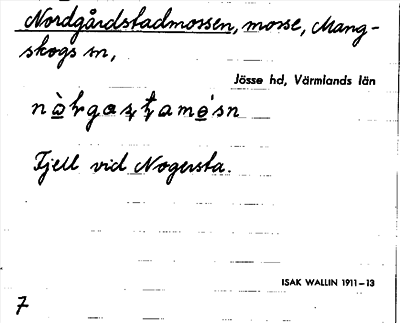 Nordgårdstadmossen, mosse, Mang-
skogs sn,
Jösse hd, Värmlands län
Fjell vid Nogersta.
ISAK WALLIN 1911–13
7